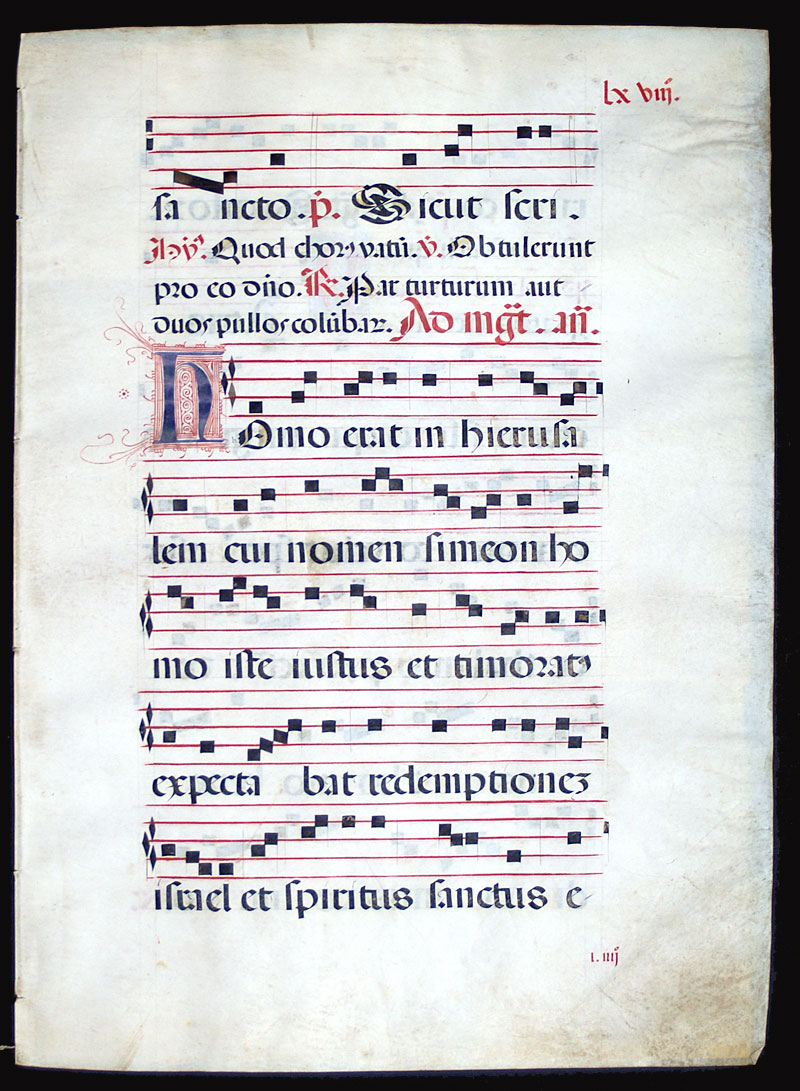 lx viij.
sa ncto. p̄. Sicut scri.
Hȳ. Quod chorꝰ vatū. v̄. Obtulerunt
pro eo dn̄o. R̄. Par turturum aut
duos pullos colūbaꝝ. Ad mgt̄. an̄.
HOmo erat in hierusa
lem cui nomen simeon ho
mo iste iustus et timoratꝰ
expecta bat redemptioneꝫ
israel et spiritus sanctus e
l. iiij